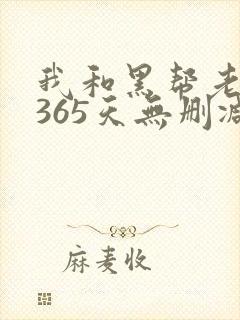 我和黑帮老
365天無删减
麻麦收